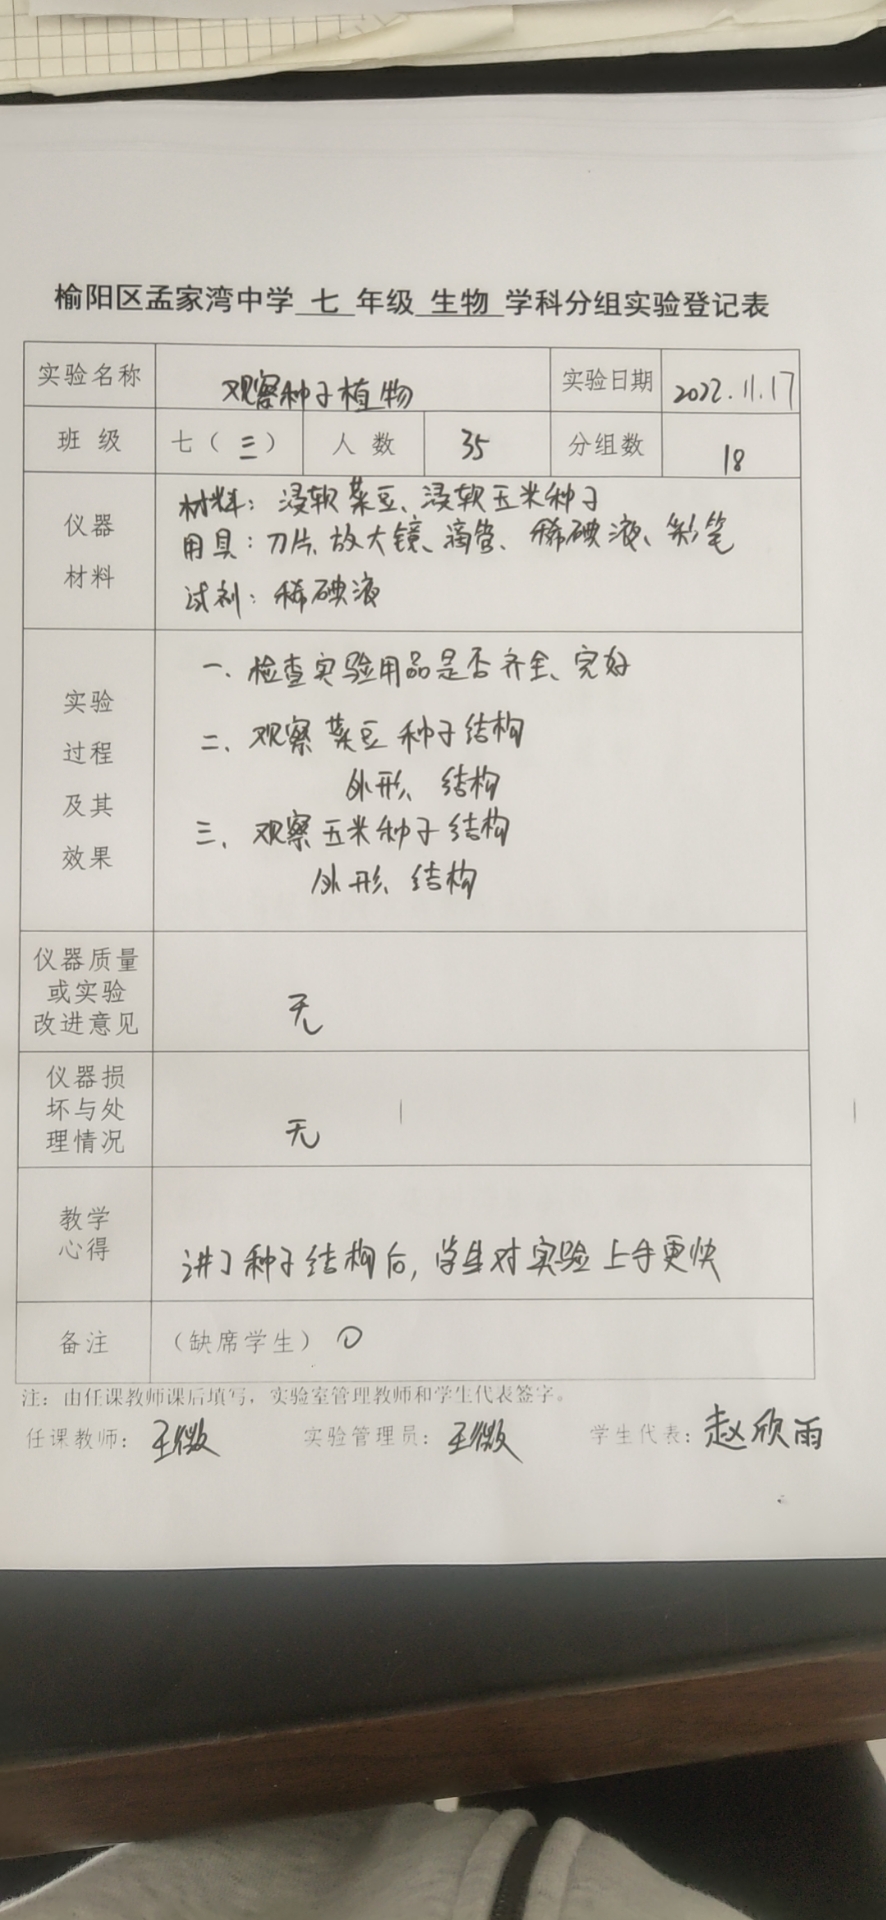 榆阳区孟家湾中学 七 年级 生物 学科分组实验登记表
实验名称 观察种子植物 实验日期 2022.11.17
班级 七（三） 人数 35 分组数 18
仪器
材料
材料：浸软菜豆、浸软玉米种子
用具：刀片、放大镜、滴管、稀碘液、彩笔
试剂：稀碘液
实验
过程
及其
效果
一、检查实验用品是否齐全、完好
二、观察菜豆种子结构
外形、结构
三、观察玉米种子结构
外形、结构
仪器质量
或实验
改进意见
无
仪器损
坏与处
理情况
无
教学
心得
讲了种子结构后，学生对实验上手更快
备注 （缺席学生）0
注：由任课教师课后填写，实验室管理教师和学生代表签字。
任课教师：王微 实验管理员：王微 学生代表：赵欣雨